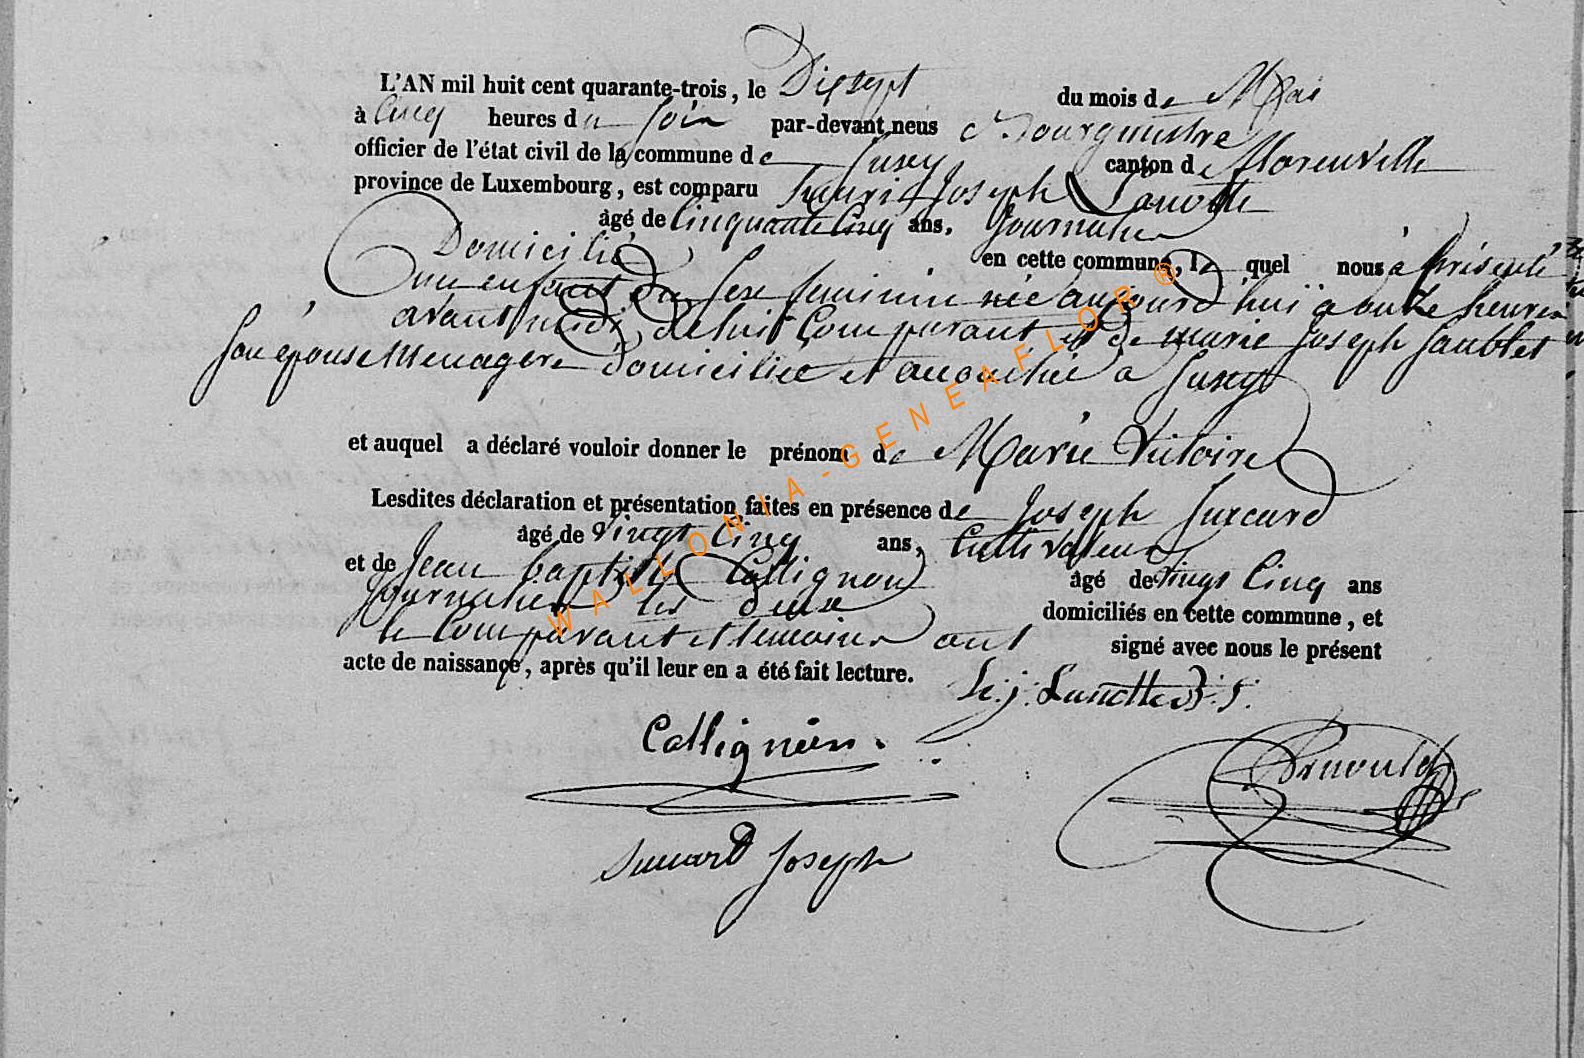 L'AN mil huit cent quarante-trois, le Dixsept du mois de Mai
à Cinq heures du Soir par-devant nous Bourgmestre
officier de l'état civil de la commune de Suxy canton de Florenville
province de Luxembourg, est comparu Henri Joseph Lanotte
âgé de Cinquante Cinq ans, Journalier
Domicilié en cette commune, lequel nous à présenté
un enfant du sexe feminin née aujourd'hui à onze heures
avant midi, de lui Comparant et de marie Joseph
Son épouse Menagère domiciliée et accouchée à Suxy
et auquel a déclaré vouloir donner le prénom de Marie Victoire
Lesdites déclaration et présentation faites en présence de Joseph
âgé de vingt Cinq ans, Cultivateur
et de Jean baptiste Collignon âgé de vingt Cinq ans
Journalier les deux domiciliés en cette commune, et
le Comparant et temoins ont signé avec nous le présent
acte de naissance, après qu'il leur en a été fait lecture.
h. j. Lanotte
Collignon.
Arnould
Joseph
WALLONIA-GENEAFLOR®